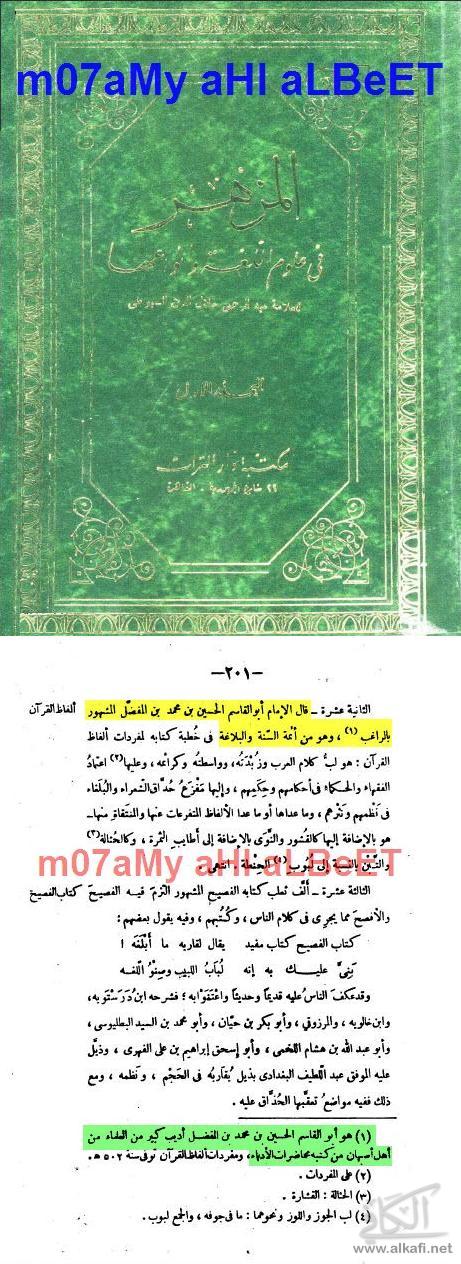 m07aMy aHl aLBeET
المزهر
في علوم اللغة وأنواعها
للعلامة عبد الرحمن جلال الدين السيوطي
المجلد الأول
مكتبة دار التراث
٢٢ شارع الجمهورية - القاهرة
—٢٠١—
الثانية عشرة ـ قال الإمام أبو القاسم الحسين بن محمد بن المفضّل المشهور
ألفاظ القرآن
بالراغب (١) ، وهو من أئمة السنّة والبلاغة فى خُطبة كتابه لمفردات ألفاظ
القرآن : هو لبُّ كلام العرب وزُبْدَتُه، وواسطتُه وكرائمه ، وعليها(٢) اعتمادُ
الفقهاء والحكماء فى أحكامهم وحِكَمِهم ، وإليها مَفْزَعُ حُذّاق الشعراء والبُلغاء
فى نَظْمهم ونَثْرهم ، وما عداها أو ما عدا الألفاظ المتفرعات عنها والمشتقات منها ـ
هو بالإضافة إليها كالقُشور والنَّوَى بالإضافة إلى أطايبِ الثمرة ، وكالحُثالة(٣)
والتِّبْن بالنسبة إلى لُبُوب(٤) الحِنطة . انتهى .
m07aMy aHl aLBeET
الثالثة عشرة ـ ألّف ثعلب كتابه الفصيح المشهور التزم فيه الفصيحَ
كتاب الفصيح
والأفصحَ مما يجرى فى كلام الناس ، وكُتُبهم ، وفيه يقول بعضهم :
كتاب الفصيح كتاب مفيد يقال لقاريه ما أبْلَغَه !
بُنَىَّ عليـك به إنه لُبابُ اللبيب وصِنْوُ اللغـه
وقد عكف الناسُ عليه قديمًا وحديثًا واعتَنَوْا به ؛ فشرحه ابن دُرَسْتَوَيه ،
وابن خالويه ، والمرزوقى ، وأبو بكر بن حيّان ، وأبو محمد بن السيد البطليوسى ،
وأبو عبد الله بن هشام اللخمى ، وأبو إسحق إبراهيم بن على الفهرى ، وذيَّل
عليه الموفق عبد اللطيف البغدادى بذيل يُقاربُه فى الحَجْم ، ونظمه ، ومع
ذلك ففيه مواضعُ تعقَّبها الحُذّاق عليه .
(١) هو أبو القاسم الحسين بن محمد بن المفضل أديب كبير من العلماء من
أهل أصبهان من كتبه محاضرات الأدباء، ومفردات ألفاظ القرآن توفى سنة ٥٠٢ هـ .
(٢) على المفردات .
(٣) الحثالة : القشارة .
(٤) لب الجوز واللوز ونحوهما : ما فى جوفه ، والجمع لبوب .
الكافي
www.alkafi.net